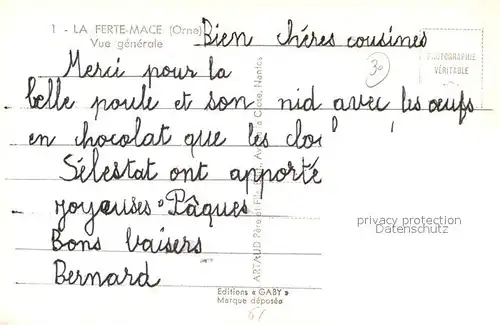 1 - LA FERTE-MACE (Orne)
Vue générale
Bien chéres cousines
Merci pour la
belle poule et son nid avec les oeufs
en chocolat que les
Sélestat ont apporté
joyeuses Pâques
Bons baisers
Bernard
30
PHOTOGRAPHIE
VÉRITABLE
ARTAUD Père et Fils Nantes
privacy protection
Datenschutz
Editions « GABY »
Marque déposée